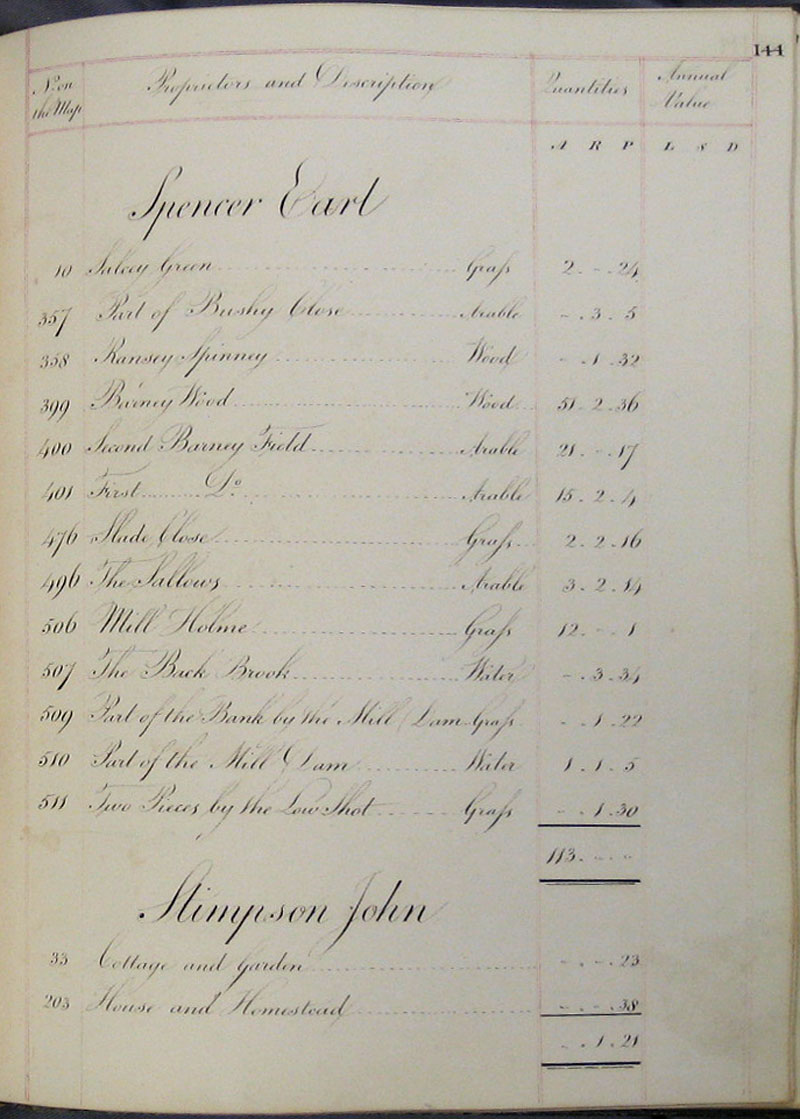 144
No. on the Map Proprietors and Description Quantities Annual Value
A R P L S D
Spencer Earl
10 Salcey Green Grass 2 . - . 24
357 Part of Bushy Close Arable - . 3 . 5
358 Ransey Spinney Wood - . 1 . 32
399 Barney Wood Wood 51 . 2 . 36
400 Second Barney Field Arable 21 . - . 17
401 First Do. Arable 15 . 2 . 4
476 Slade Close Grass 2 . 2 . 16
496 The Sallows Arable 3 . 2 . 14
506 Mill Holme Grass 12 . - . 1
507 The Back Brook Water - . 3 . 34
509 Part of the Bank by the Mill Dam Grass - . 1 . 22
510 Part of the Mill Dam Water 1 . 1 . 5
511 Two Pieces by the Low Shot Grass - . 1 . 30
113 . - . -
Stimpson John
33 Cottage and Garden - . - . 23
203 House and Homestead - . - . 38
- . 1 . 21